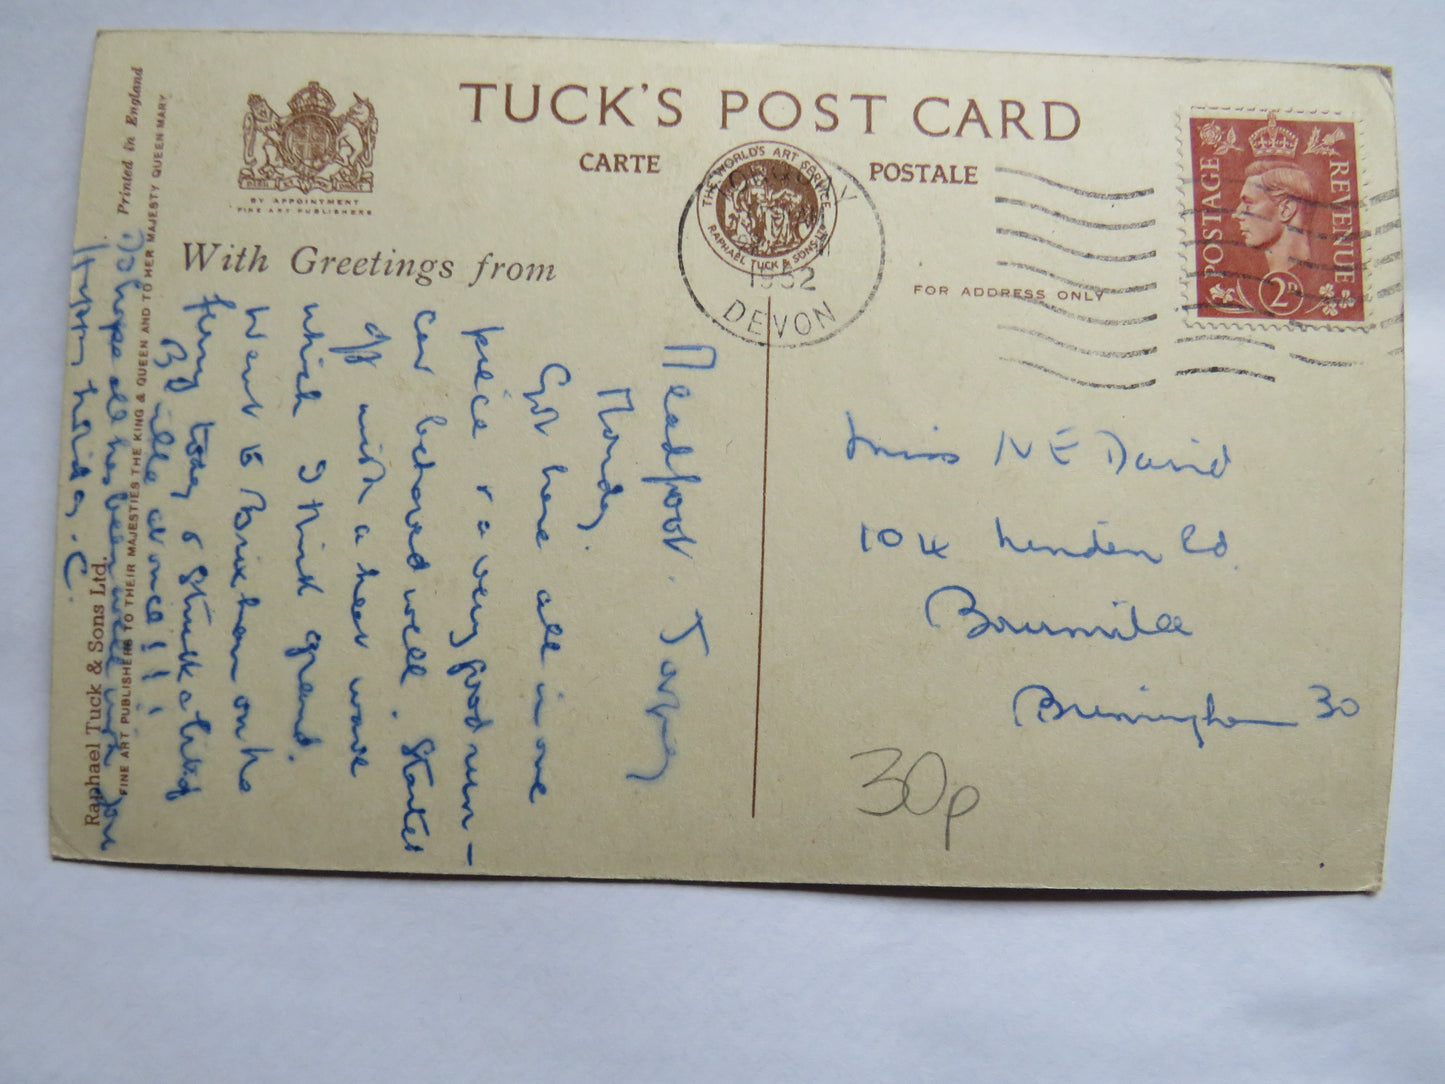 TUCK'S POST CARD
CARTE POSTALE
THE WORLD'S ART SERVICE
RAPHAEL TUCK & SONS LTD
BY APPOINTMENT
FINE ART PUBLISHERS
With Greetings from
TORQUAY
1952
DEVON
POSTAGE REVENUE
2D
FOR ADDRESS ONLY
Miss N E David
104 Linden Rd
Bournville
Birmingham 30
30p
Meadfoot. Torquay
Monday.
Got here all in one
piece & a very good run —
car behaved well. Started
off with a heat wave
which I think grand.
Went to Brixham on the
ferry today & struck a
B'ville at once!!!
I hope all has been well with you
Happy holiday. C.
Printed in England
FINE ART PUBLISHERS TO THEIR MAJESTIES THE KING & QUEEN AND TO HER MAJESTY QUEEN MARY
Raphael Tuck & Sons Ltd.